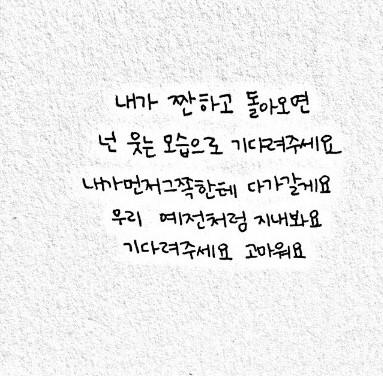 내가 짠하고 돌아오면
넌 웃는 모습으로 기다려주세요
내가먼저그쪽한테 다가갈게요
우리 예전처럼 지내봐요
기다려주세요 고마워요